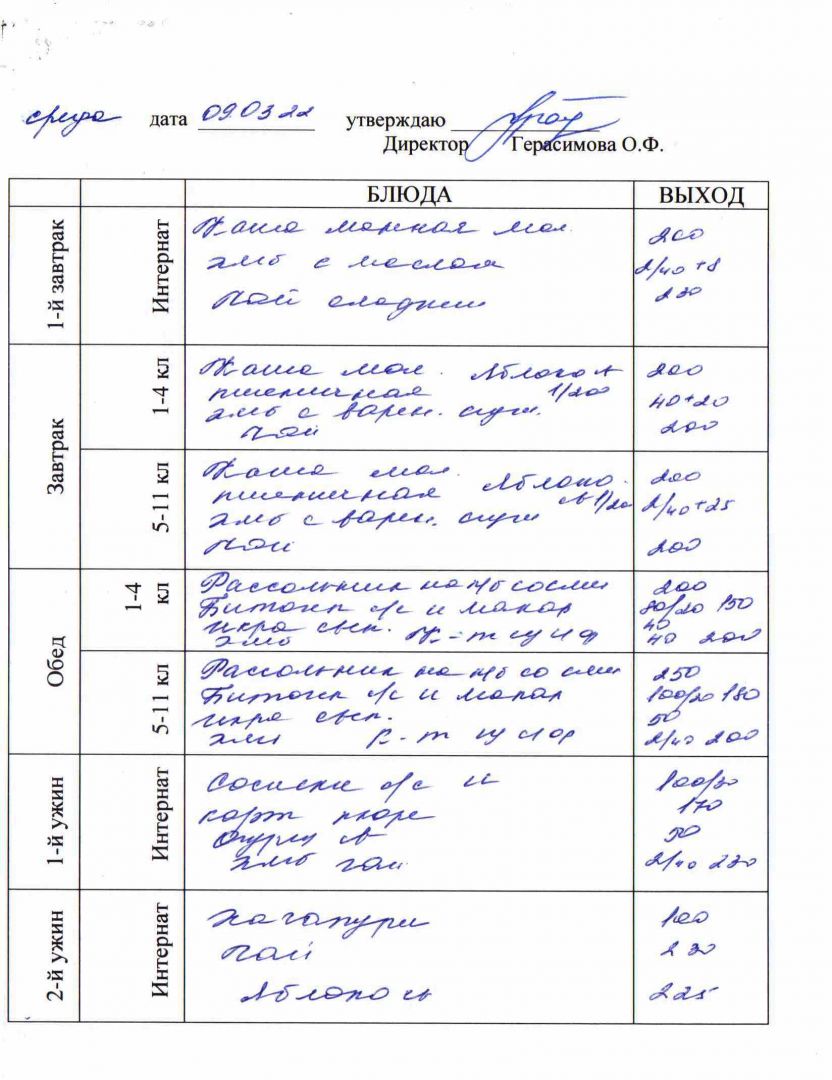 среда дата 09.03 22 утверждаю
Директор Герасимова О.Ф.
БЛЮДА ВЫХОД
1-й завтрак Интернат
Каша манная мол. 200
хлеб с маслом 2/40 +8
Чай сладкий 230
Завтрак
1-4 кл
Каша мол. Яблоко 200
пшеничная 1/200
хлеб с варен. сгущ. 40+20
Чай 200
5-11 кл
Каша мол. 200
пшеничная Яблоко
хлеб с варен. сгущ 2/40+25
Чай 200
Обед
1-4 кл
Рассольник на м/б со сме 200
Биточки с/с и макар 80/20 150
икра свек. 40
хлеб К-т 40 200
5-11 кл
Рассольник на м/б со сме 250
Биточки с/с и макар 100/30 180
икра свек. 50
хлеб К-т 2/40 200
1-й ужин Интернат
Сосиски с/с и 100/30
карт пюре 170
Огурец св 50
хлеб чай. 2/40 230
2-й ужин Интернат
Хачапури 100
Чай 230
Яблоко св 225